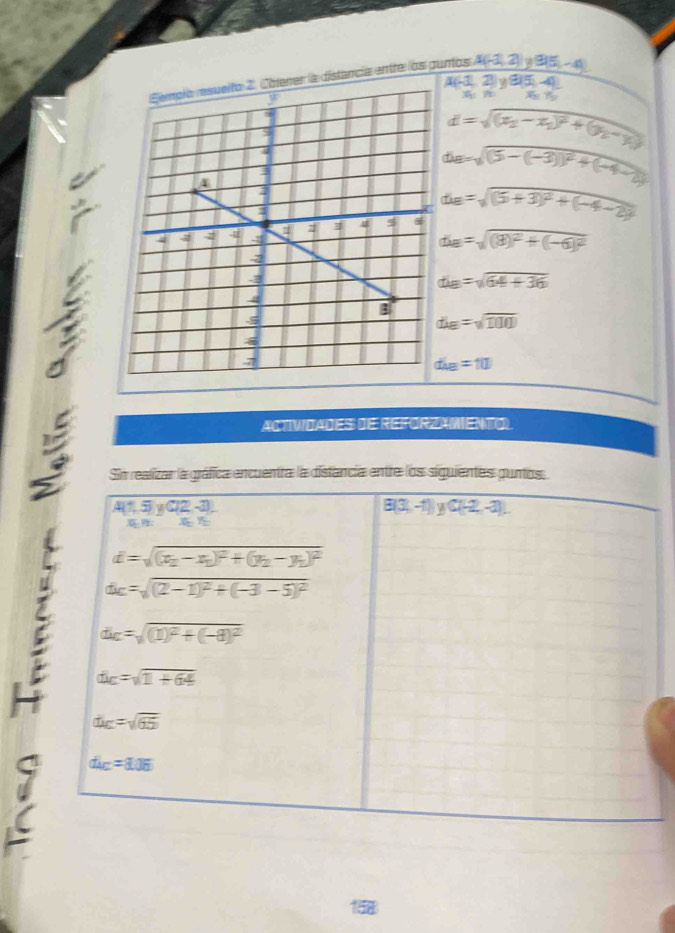 Ejemplo resuelto 2. Obtener la distancia entre los puntos A(-3, 2) y B(5, -4).
A(-3, 2) y B(5, -4).
x₁ y₁ x₂ y₂
d = √(x₂ - x₁)² + (y₂ - y₁)²
d_AB = √(5 - (-3))² + (-4 - 2)²
d_AB = √(5 + 3)² + (-4 - 2)²
d_AB = √(8)² + (-6)²
d_AB = √64 + 36
d_AB = √100
d_AB = 10
A
B
ACTIVIDADES DE REFORZAMIENTO.
Sin realizar la gráfica encuentra la distancia entre los siguientes puntos.
A(1, 5) y C(2, -3).
x₁ y₁ x₂ y₂
d = √(x₂ - x₁)² + (y₂ - y₁)²
d_AC = √(2 - 1)² + (-3 - 5)²
d_AC = √(1)² + (-8)²
d_AC = √1 + 64
d_AC = √65
d_AC = 8.06
B(3, -1) y C(-2, -3).
158